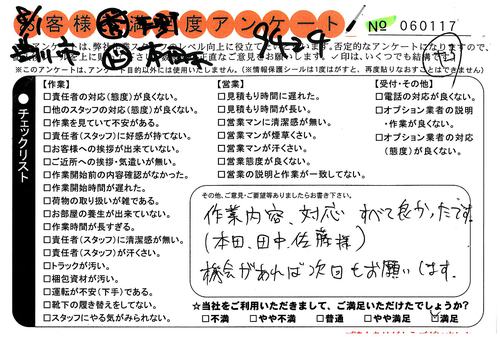 お客様満足度アンケート
No 060117
8/1
9429
※このアンケートは、アンケート目的以外には使用いたしません。（※情報保護シールは1度がはすと、再度貼りなおすことはできません。）
チェックリスト
【作業】
□責任者の対応（態度）が良くない。
□他のスタッフの対応（態度）が良くない。
□作業を見ていて不安がある。
□責任者（スタッフ）に好感が持てない。
□お客様への挨拶が出来ていない。
□ご近所への挨拶・気遣いが無い。
□作業開始前の内容確認がなかった。
□作業開始時間が遅れた。
□荷物の取り扱いが雑である。
□お部屋の養生が出来ていない。
□作業時間が長すぎる。
□責任者（スタッフ）に清潔感が無い。
□責任者（スタッフ）が汗さい。
□トラックが汚い。
□梱包資材が汚い。
□運転が不安（下手）である。
□靴下の履き替えをしてない。
□スタッフにやる気がみられない。
【営業】
□見積もり時間に遅れた。
□見積もり時間が長い。
□営業マンに清潔感が無い。
□営業マンが煙草くさい。
□営業マンが汗さい。
□営業態度が良くない。
□営業の説明と作業が一致してない。
【受付・その他】
□電話の対応が良くない。
□オプション業者の説明
・作業が良くない。
□オプション業者の対応
（態度）が良くない。
その他、ご意見・ご要望等ありましたらお書き下さい。
作業内容、対応 すべて良かったです
(本田、田中、佐藤様)
機会があれば次回もお願いします。
☆当社をご利用いただきまして、ご満足いただけたでしょうか？
□不満 □やや不満 □普通 □やや満足 ☑満足